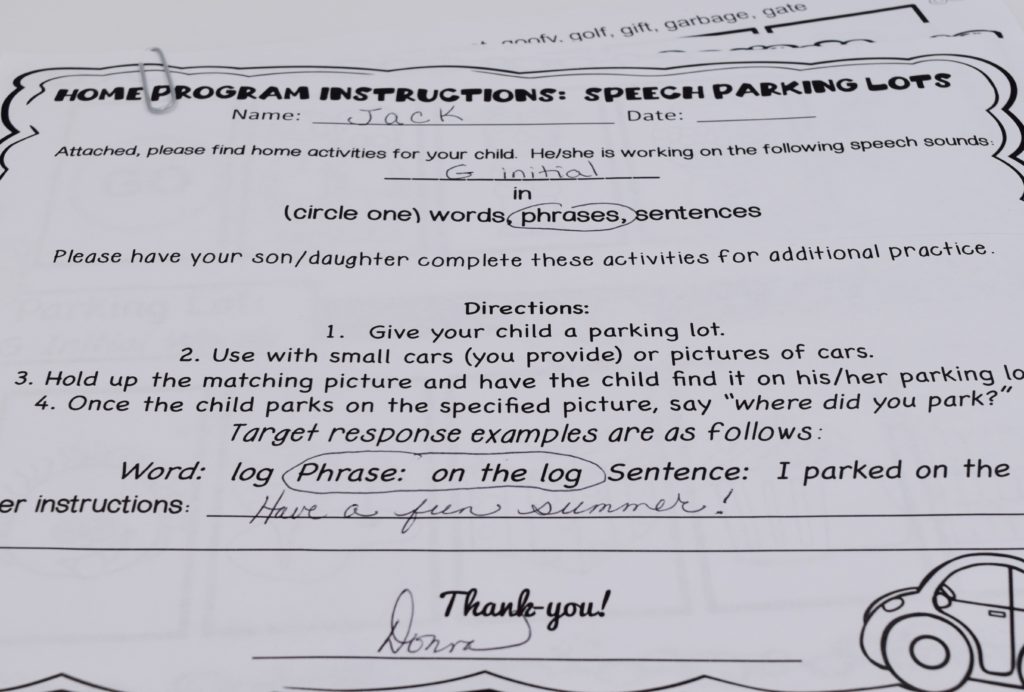 goofy, golf, gift, garbage, gate
HOME PROGRAM INSTRUCTIONS: SPEECH PARKING LOTS
Name: Jack Date:
Attached, please find home activities for your child. He/she is working on the following speech sounds:
G initial
in
(circle one) words, phrases, sentences
Please have your son/daughter complete these activities for additional practice.
Directions:
1. Give your child a parking lot.
2. Use with small cars (you provide) or pictures of cars.
3. Hold up the matching picture and have the child find it on his/her parking lo
4. Once the child parks on the specified picture, say "where did you park?"
Target response examples are as follows:
Word: log Phrase: on the log Sentence: I parked on the
er instructions: Have a fun summer!
Thank-you!
Donna